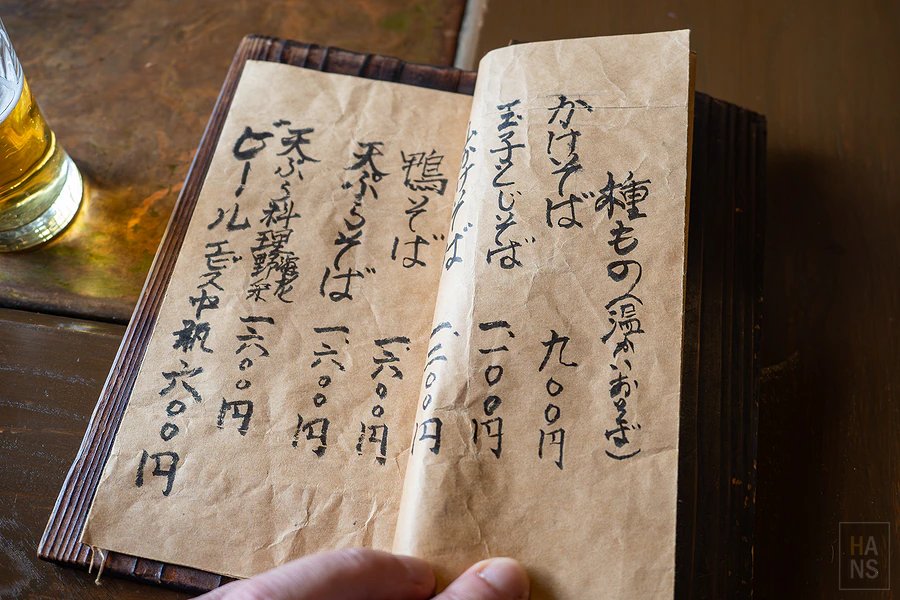 種もの（温かいおそば）
かけそば 九〇〇円
玉子とじそば 一、一〇〇円
かけそば 一、二〇〇円
鴨そば 一、六〇〇円
天ぷらそば 一、六〇〇円
天ぷら料理 海老 野菜 一、六〇〇円
ビール エビス中瓶 六〇〇円
HANS